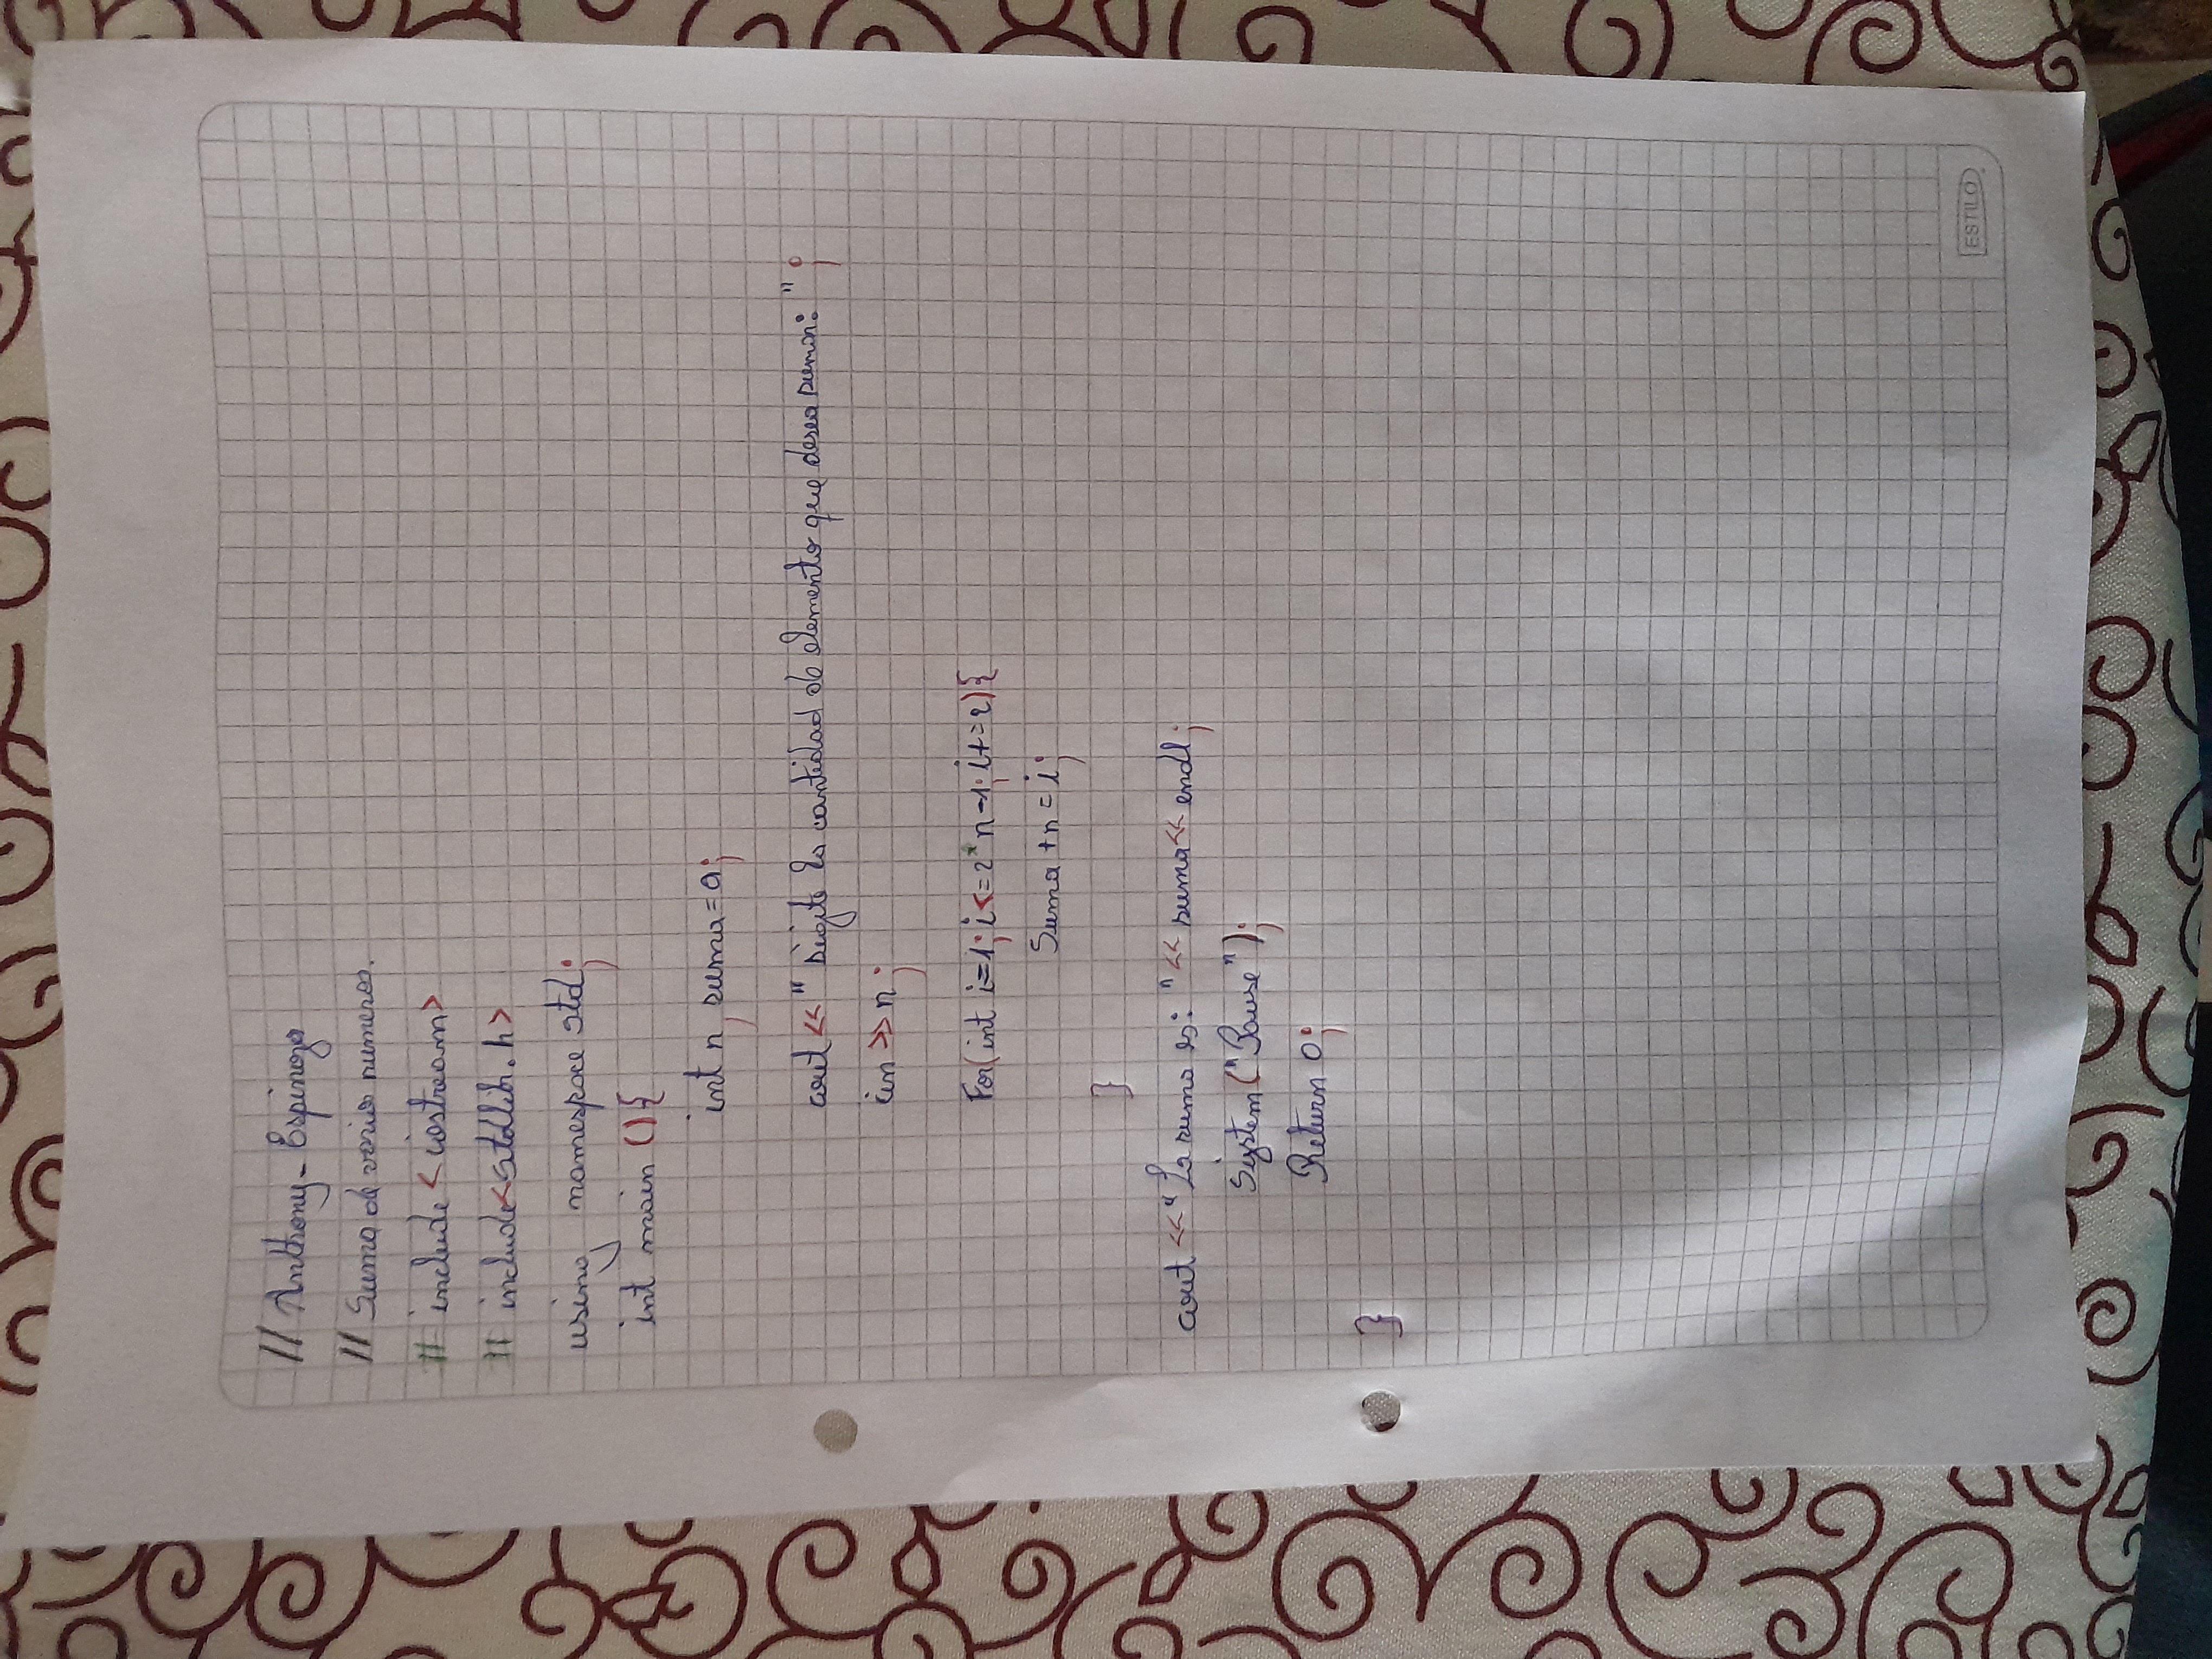 // Anthony - Espinoza
// Suma de varios numeros.
# include <iostream>
# include <stdlib.h>
using namespace std;
int main (){
int n, suma = 0;
cout << " Digite la cantidad de elemento que desea sumar: " ;
cin >> n ;
For( int i=1; i<=2*n-1; i+=2){
Suma +n = i;
}
cout << "La suma es: " << suma << endl;
System ("Pause");
Return 0;
}
ESTILO